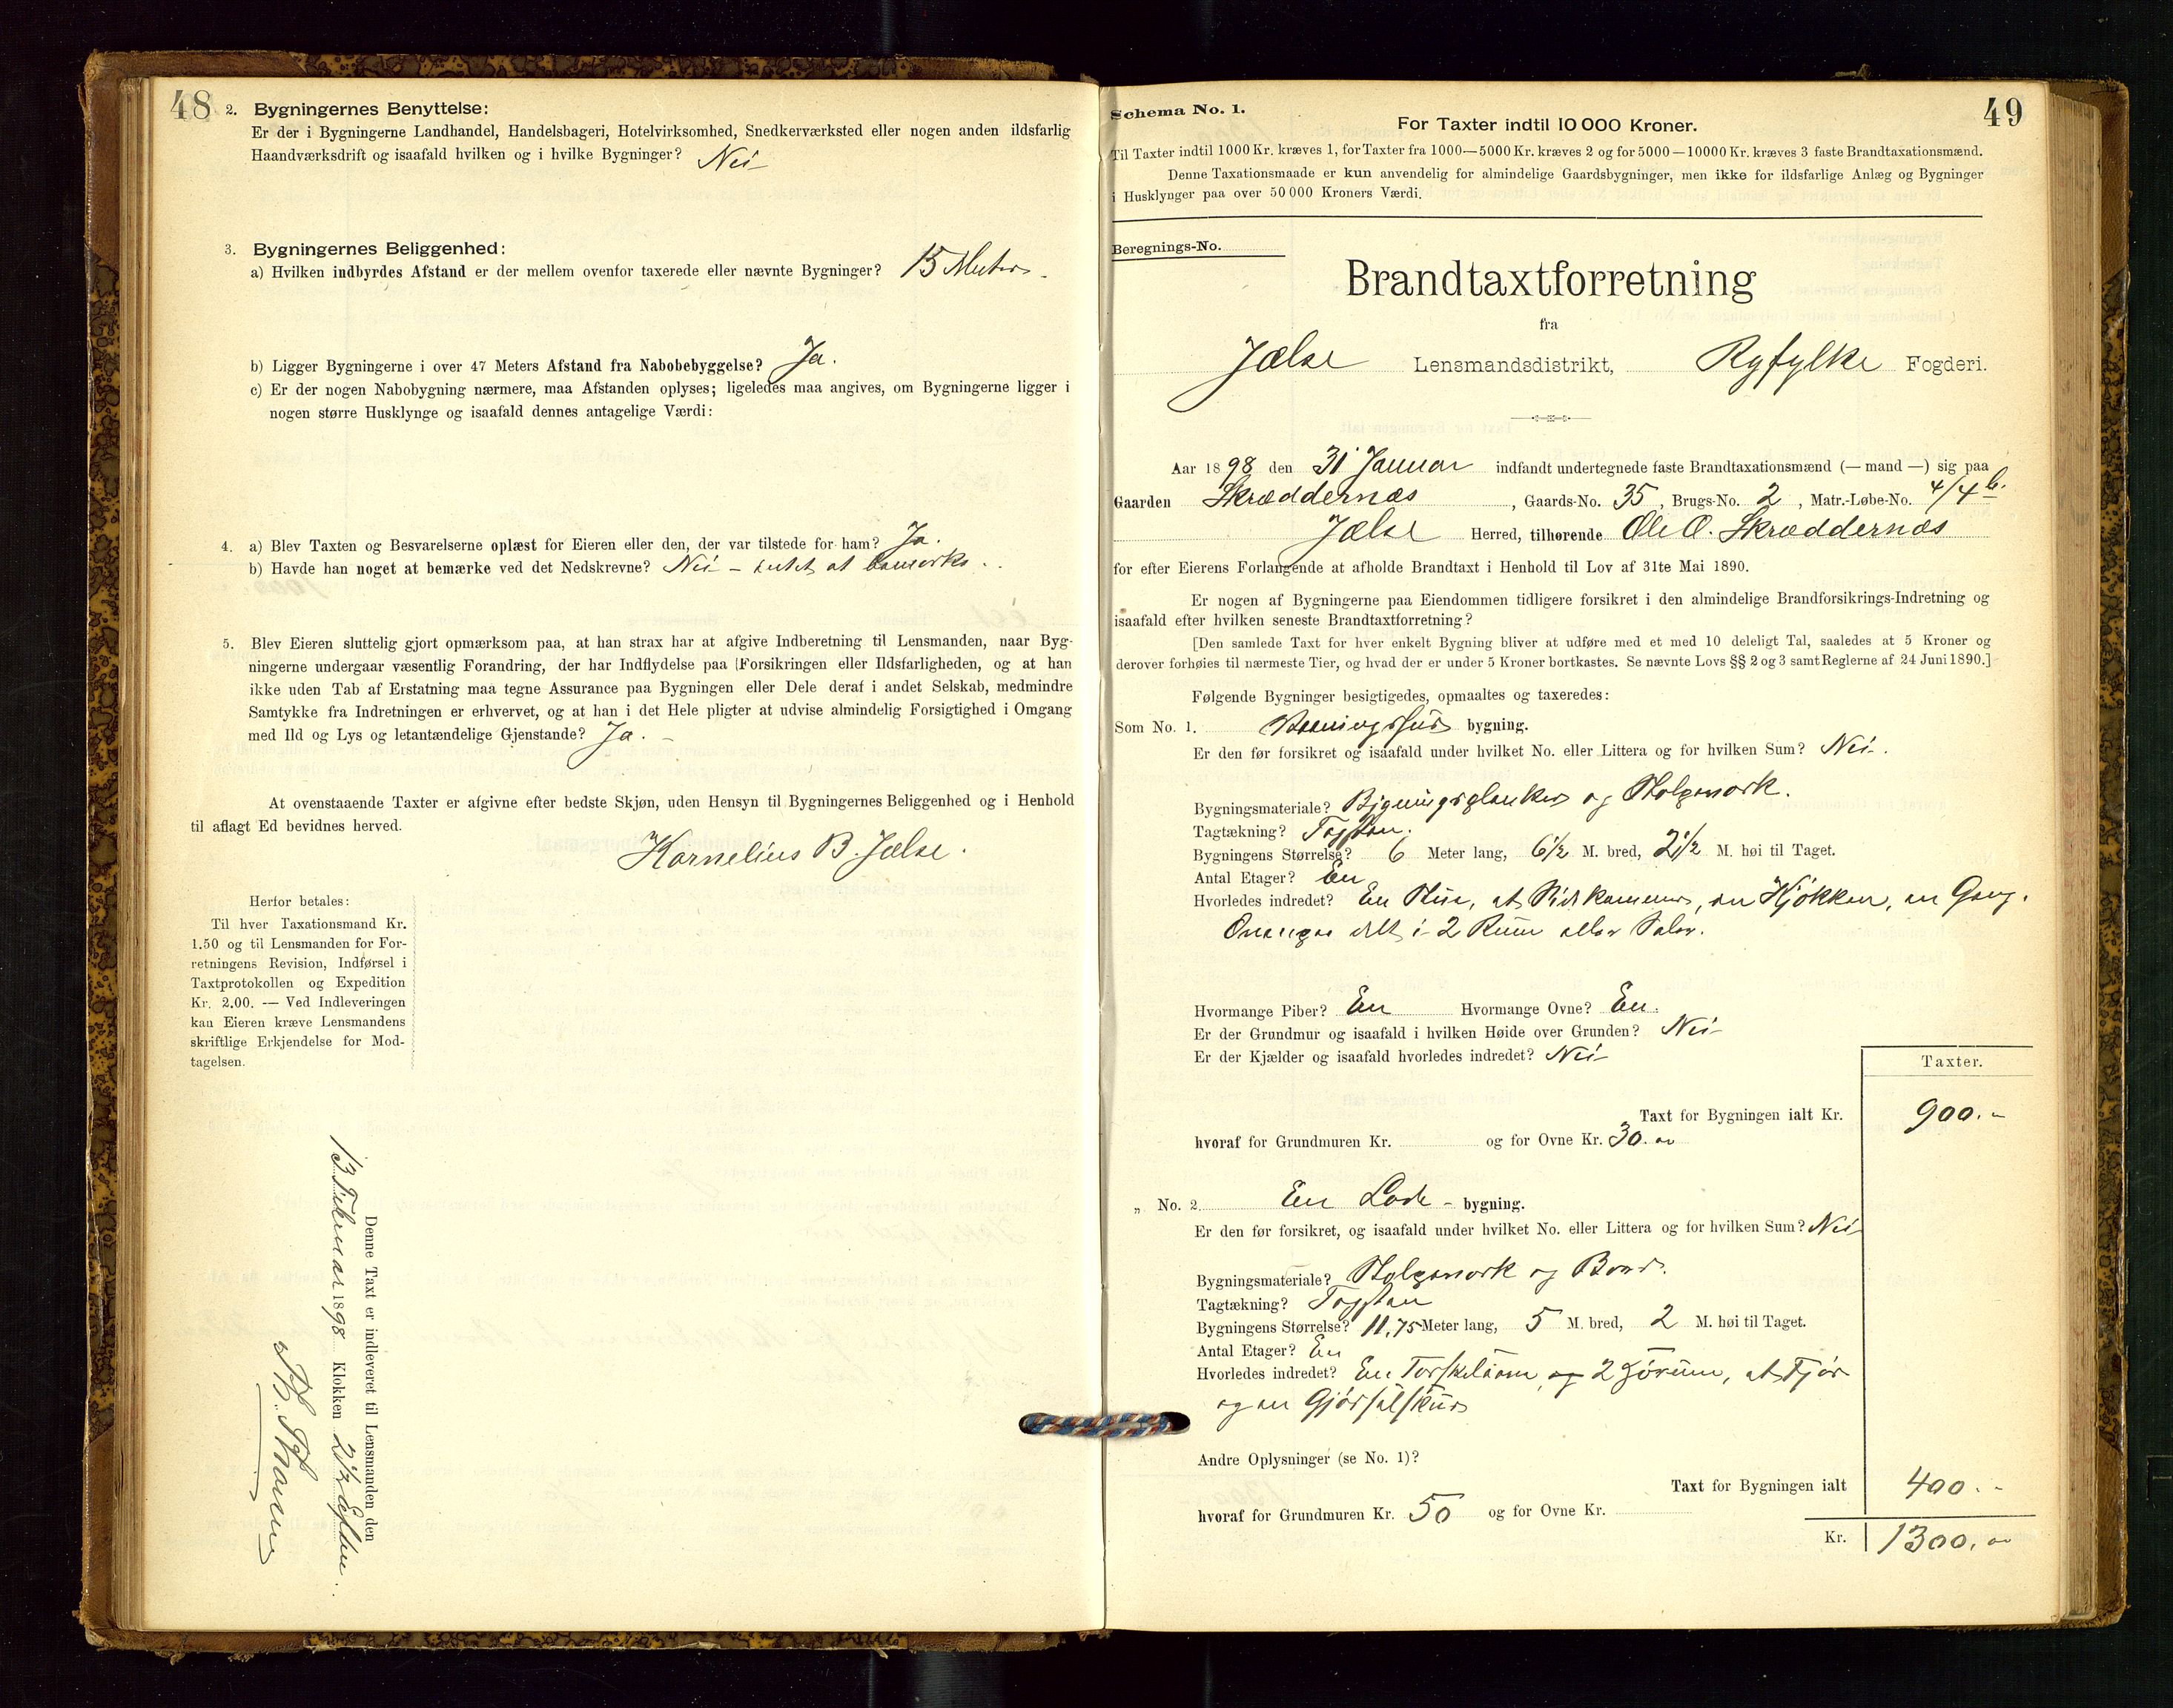 48
2. Bygningernes Benyttelse:
Er der i Bygningerne Landhandel, Handelsbageri, Hotelvirksomhed, Snedkerværksted eller nogen anden ildsfarlig
Haandværksdrift og isaafald hvilken og i hvilke Bygninger? Nei
3. Bygningernes Beliggenhed:
a) Hvilken indbyrdes Afstand er der mellem ovenfor taxerede eller nævnte Bygninger? 15 Meter
b) Ligger Bygningerne i over 47 Meters Afstand fra Nabobebyggelse? Ja.
c) Er der nogen Nabobygning nærmere, maa Afstanden oplyses; ligeledes maa angives, om Bygningerne ligger i
nogen større Husklynge og isaafald dennes antagelige Værdi:
4. a) Blev Taxten og Besvarelserne oplæst for Eieren eller den, der var tilstede for ham? Ja.
b) Havde han noget at bemærke ved det Nedskrevne? Nei – intet at bemærke.
5. Blev Eieren sluttelig gjort opmærksom paa, at han strax har at afgive Indberetning til Lensmanden, naar Byg-
ningerne undergaar væsentlig Forandring, der har Indflydelse paa Forsikringen eller Ildsfarligheden, og at han
ikke uden Tab af Erstatning maa tegne Assurance paa Bygningen eller Dele deraf i andet Selskab, medmindre
Samtykke fra Indretningen er erhvervet, og at han i det Hele pligter at udvise almindelig Forsigtighed i Omgang
med Ild og Lys og letantændelige Gjenstande? Ja. –
At ovenstaaende Taxter er afgivne efter bedste Skjøn, uden Hensyn til Bygningernes Beliggenhed og i Henhold
til aflagt Ed bevidnes herved.
Kornelius B. Jælse.
Herfor betales:
Til hver Taxationsmand Kr.
1.50 og til Lensmanden for For-
retningens Revision, Indførsel i
Taxtprotokollen og Expedition
Kr. 2.00. — Ved Indleveringen
kan Eieren kræve Lensmandens
skriftlige Erkjendelse for Mod-
tagelsen.
Denne Taxt er indleveret til Lensmanden den
13 Februar 1898 Klokken 2 1/2 Eftm.
49
Schema No. 1.
For Taxter indtil 10 000 Kroner.
Til Taxter indtil 1000 Kr. kræves 1, for Taxter fra 1000—5000 Kr. kræves 2 og for 5000—10000 Kr. kræves 3 faste Brandtaxationsmænd.
Denne Taxationsmaade er kun anvendelig for almindelige Gaardsbygninger, men ikke for ildsfarlige Anlæg og Bygninger
i Husklynger paa over 50 000 Kroners Værdi.
Beregnings-No.
Brandtaxtforretning
fra
Jælse Lensmandsdistrikt, Ryfylke Fogderi.
Aar 1898 den 31 Januar indfandt undertegnede faste Brandtaxationsmænd (— mand —) sig paa
Gaarden Skræddernæs, Gaards-No. 35, Brugs-No. 2, Matr.-Løbe-No. 4/4 b.
Jælse Herred, tilhørende Ole O. Skræddernæs
for efter Eierens Forlangende at afholde Brandtaxt i Henhold til Lov af 31te Mai 1890.
Er nogen af Bygningerne paa Eiendommen tidligere forsikret i den almindelige Brandforsikrings-Indretning og
isaafald efter hvilken seneste Brandtaxtforretning?
[Den samlede Taxt for hver enkelt Bygning bliver at udføre med et med 10 deleligt Tal, saaledes at 5 Kroner og
derover forhøies til nærmeste Tier, og hvad der er under 5 Kroner bortkastes. Se nævnte Lovs §§ 2 og 3 samt Reglerne af 24 Juni 1890.]
Følgende Bygninger besigtigedes, opmaaltes og taxeredes:
Som No. 1. Vaaningshus bygning.
Er den før forsikret og isaafald under hvilket No. eller Littera og for hvilken Sum? Nei.
Bygningsmateriale? Bygningsplanker og Stolpeverk.
Tagtækning? Tagsten.
Bygningens Størrelse? 6 Meter lang, 6 1/2 M. bred, 2 1/2 M. høi til Taget.
Antal Etager? En
Hvorledes indredet? En Stue, et Sidekammer, en Kjøkken, en Gang.
Ovenpaa delt i 2 Rum eller Saler.
Hvormange Piber? En Hvormange Ovne? En.
Er der Grundmur og isaafald i hvilken Høide over Grunden? Nei
Er der Kjælder og isaafald hvorledes indredet? Nei
Taxter.
Taxt for Bygningen ialt Kr. 900.-
hvoraf for Grundmuren Kr. og for Ovne Kr. 30.00
„ No. 2. En Lade – bygning.
Er den før forsikret, og isaafald under hvilket No. eller Littera og for hvilken Sum? Nei
Bygningsmateriale? Stolpeverk og Bord.
Tagtækning? Tagsten
Bygningens Størrelse? 11,75 Meter lang, 5 M. bred, 2 M. høi til Taget.
Antal Etager? En
Hvorledes indredet? En Torskelaave, og 2 Hørum, et Fjøs
og en
Andre Oplysninger (se No. 1)?
Taxt for Bygningen ialt 400.-
hvoraf for Grundmuren Kr. 50 og for Ovne Kr.
Kr. 1300.00